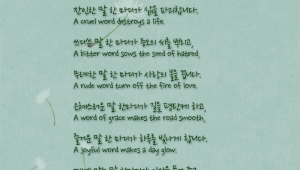 잔인한 말 한 마디가 삶을 파괴합니다.
A cruel word destroys a life.
쓰디쓴 말 한 마디가 증오의 씨를 뿌리고,
A bitter word sows the seed of hatred,
무례한 말 한 마디가 사랑의 불을 끕니다.
A rude word turn off the fire of love.
은혜스러운 말 한마디가 길을 평탄케 하고,
A word of grace makes the road smooth,
즐거운 말 한 마디가 하루를 빛나게 합니다.
A joyful word makes a day glow.